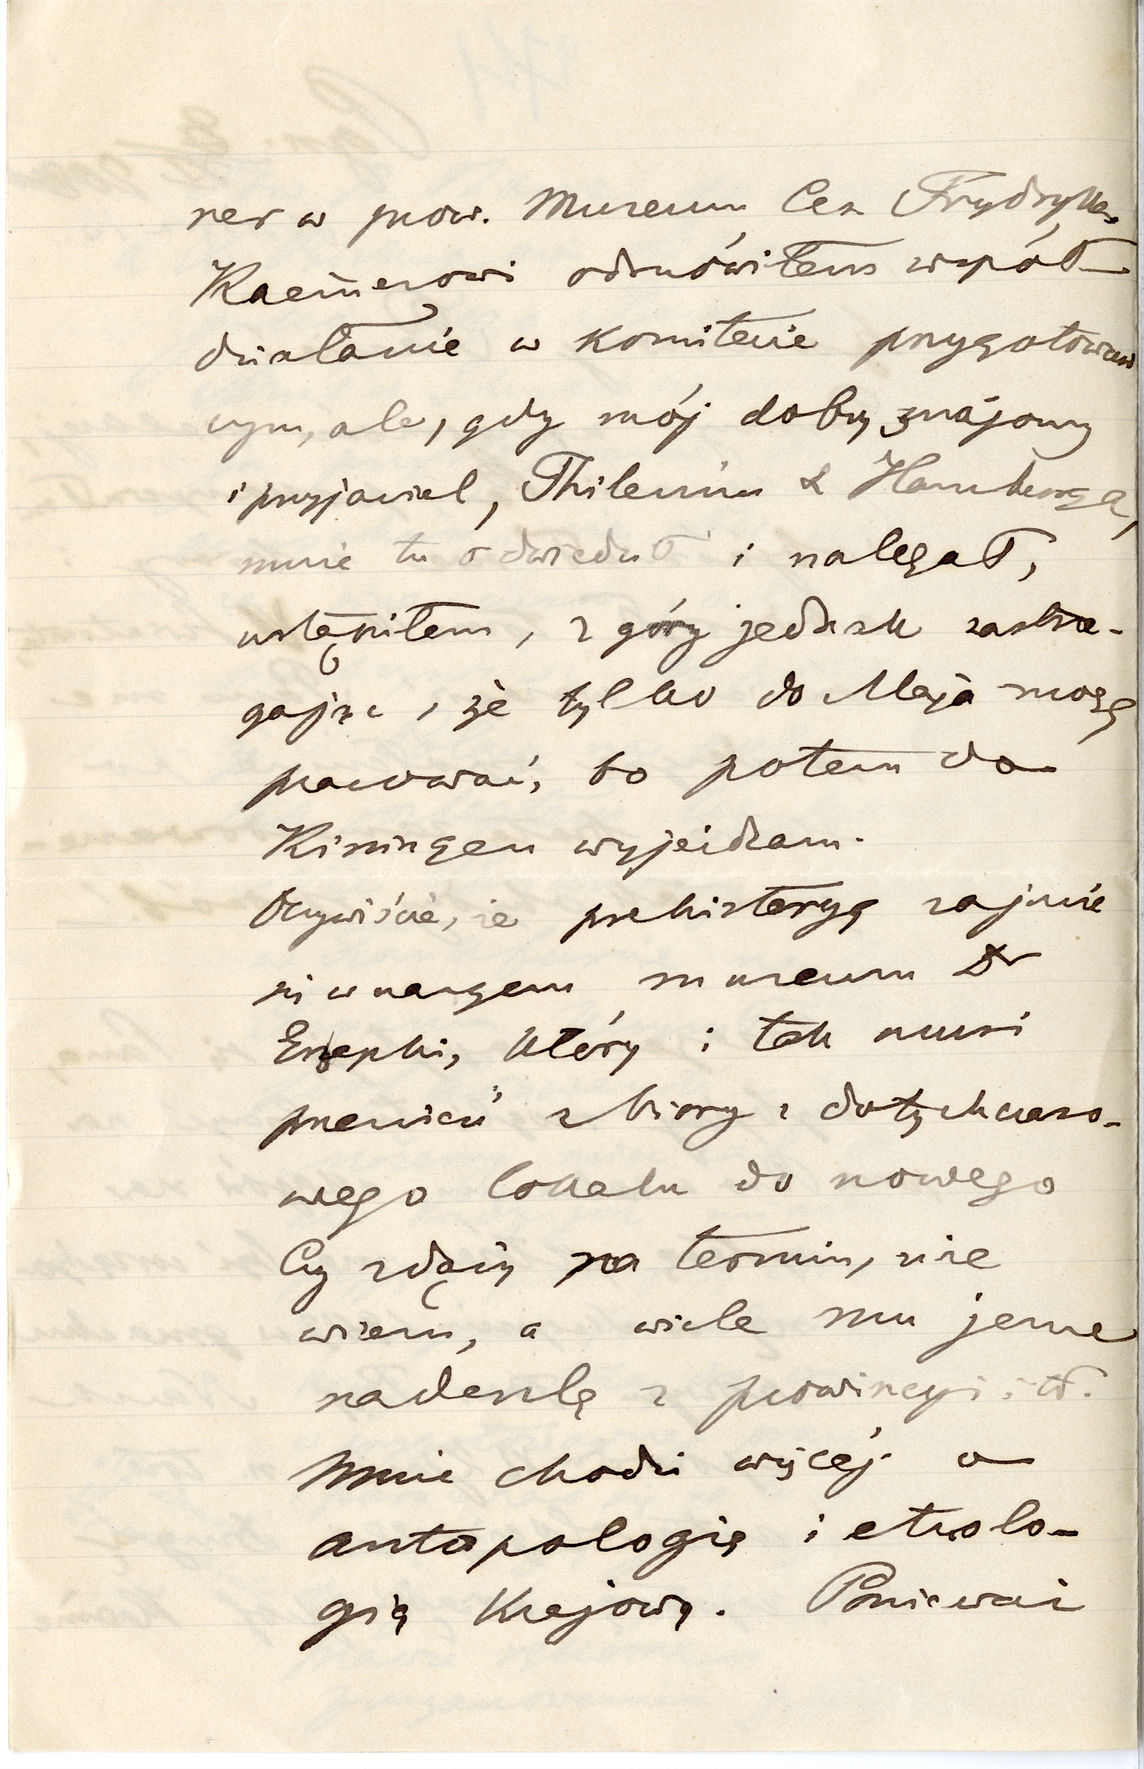 ner w prow. Museum Ces Frydryka.
Kaemerowi odmówiłem współ-
działanie w komitecie przygotowaw
czym, ale, gdy mój dobry znajomy
i przyjaciel, Thilenius z Hamburga,
mnie tu odwiedził i nalegał,
ustąpiłem, z góry jednak zastrze-
gając, że tylko do Maja mogę
pracować, bo potem do
Kissingen wyjeżdżam.
Oczywiście, że prehistoryą zajmie
się w naszem museum Dr
, który i tak musi
przenieść zbiory z dotychczaso-
wego lokalu do nowego
Czy zdąży na termin, nie
wiem, a wiele mu jeszcze
nadeszlą z prowincyi itd.
Mnie chodzi więcej o
antopologię i etnolo-
gią krajową. Ponieważ